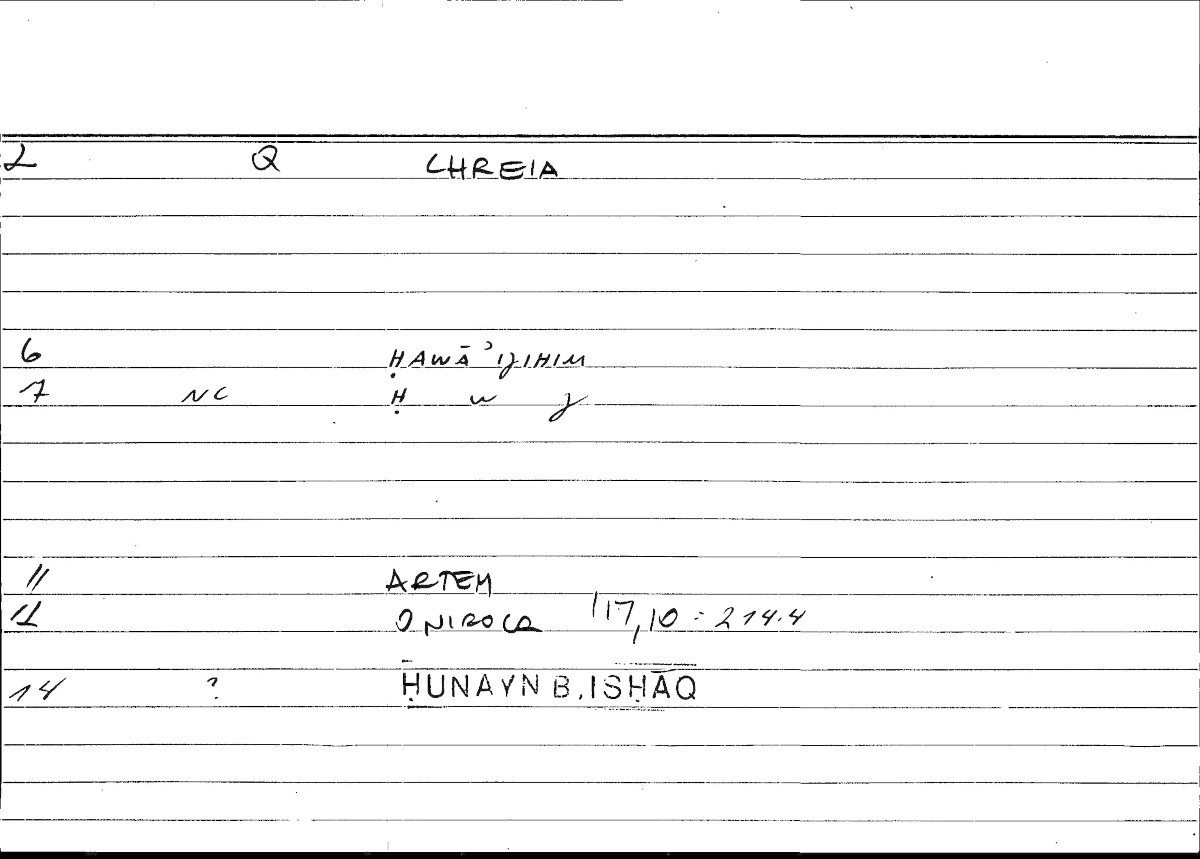 2 Q CHREIA
6 ḤAWĀʾIJIHIM
7 NC Ḥ w j
11 ARTEM
12 ONIROCR 117,10 = 214.4
14 ? ḤUNAYN B. ISḤĀQ